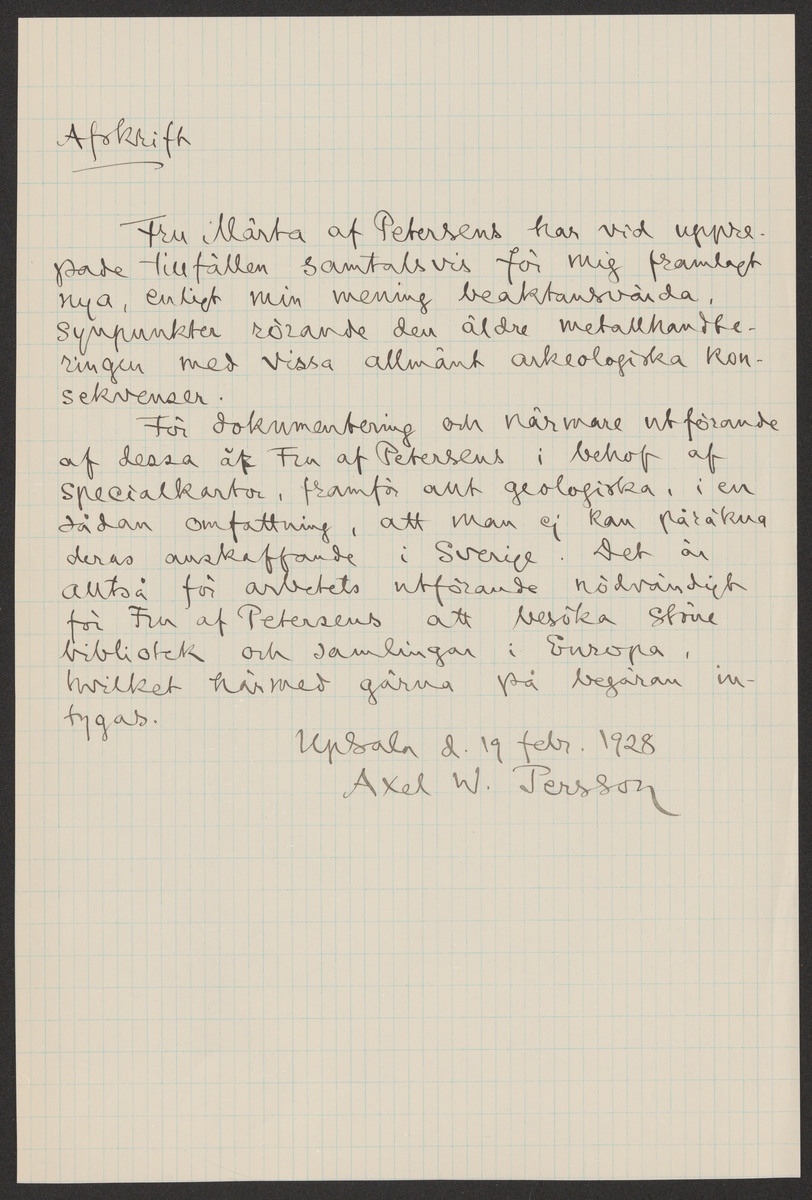 Afskrift
Fru Märta af Petersens har vid uppre-
pade tillfällen samtalsvis för mig framlagt
nya, enligt min mening beaktansvärda,
synpunkter rörande den äldre metallhandte-
ringen med vissa allmänt arkeologiska kon-
sekvenser.
För dokumentering och närmare utförande
af dessa är Fru af Petersens i behof af
specialkartor, framför allt geologiska, i en
sådan omfattning, att man ej kan påräkna
deras anskaffande i Sverige. Det är
alltså för arbetets utförande nödvändigt
för Fru af Petersens att besöka större
bibliotek och samlingar i Europa,
hvilket härmed gärna på begäran in-
tygas.
Upsala d. 19 febr. 1928
Axel W. Persson